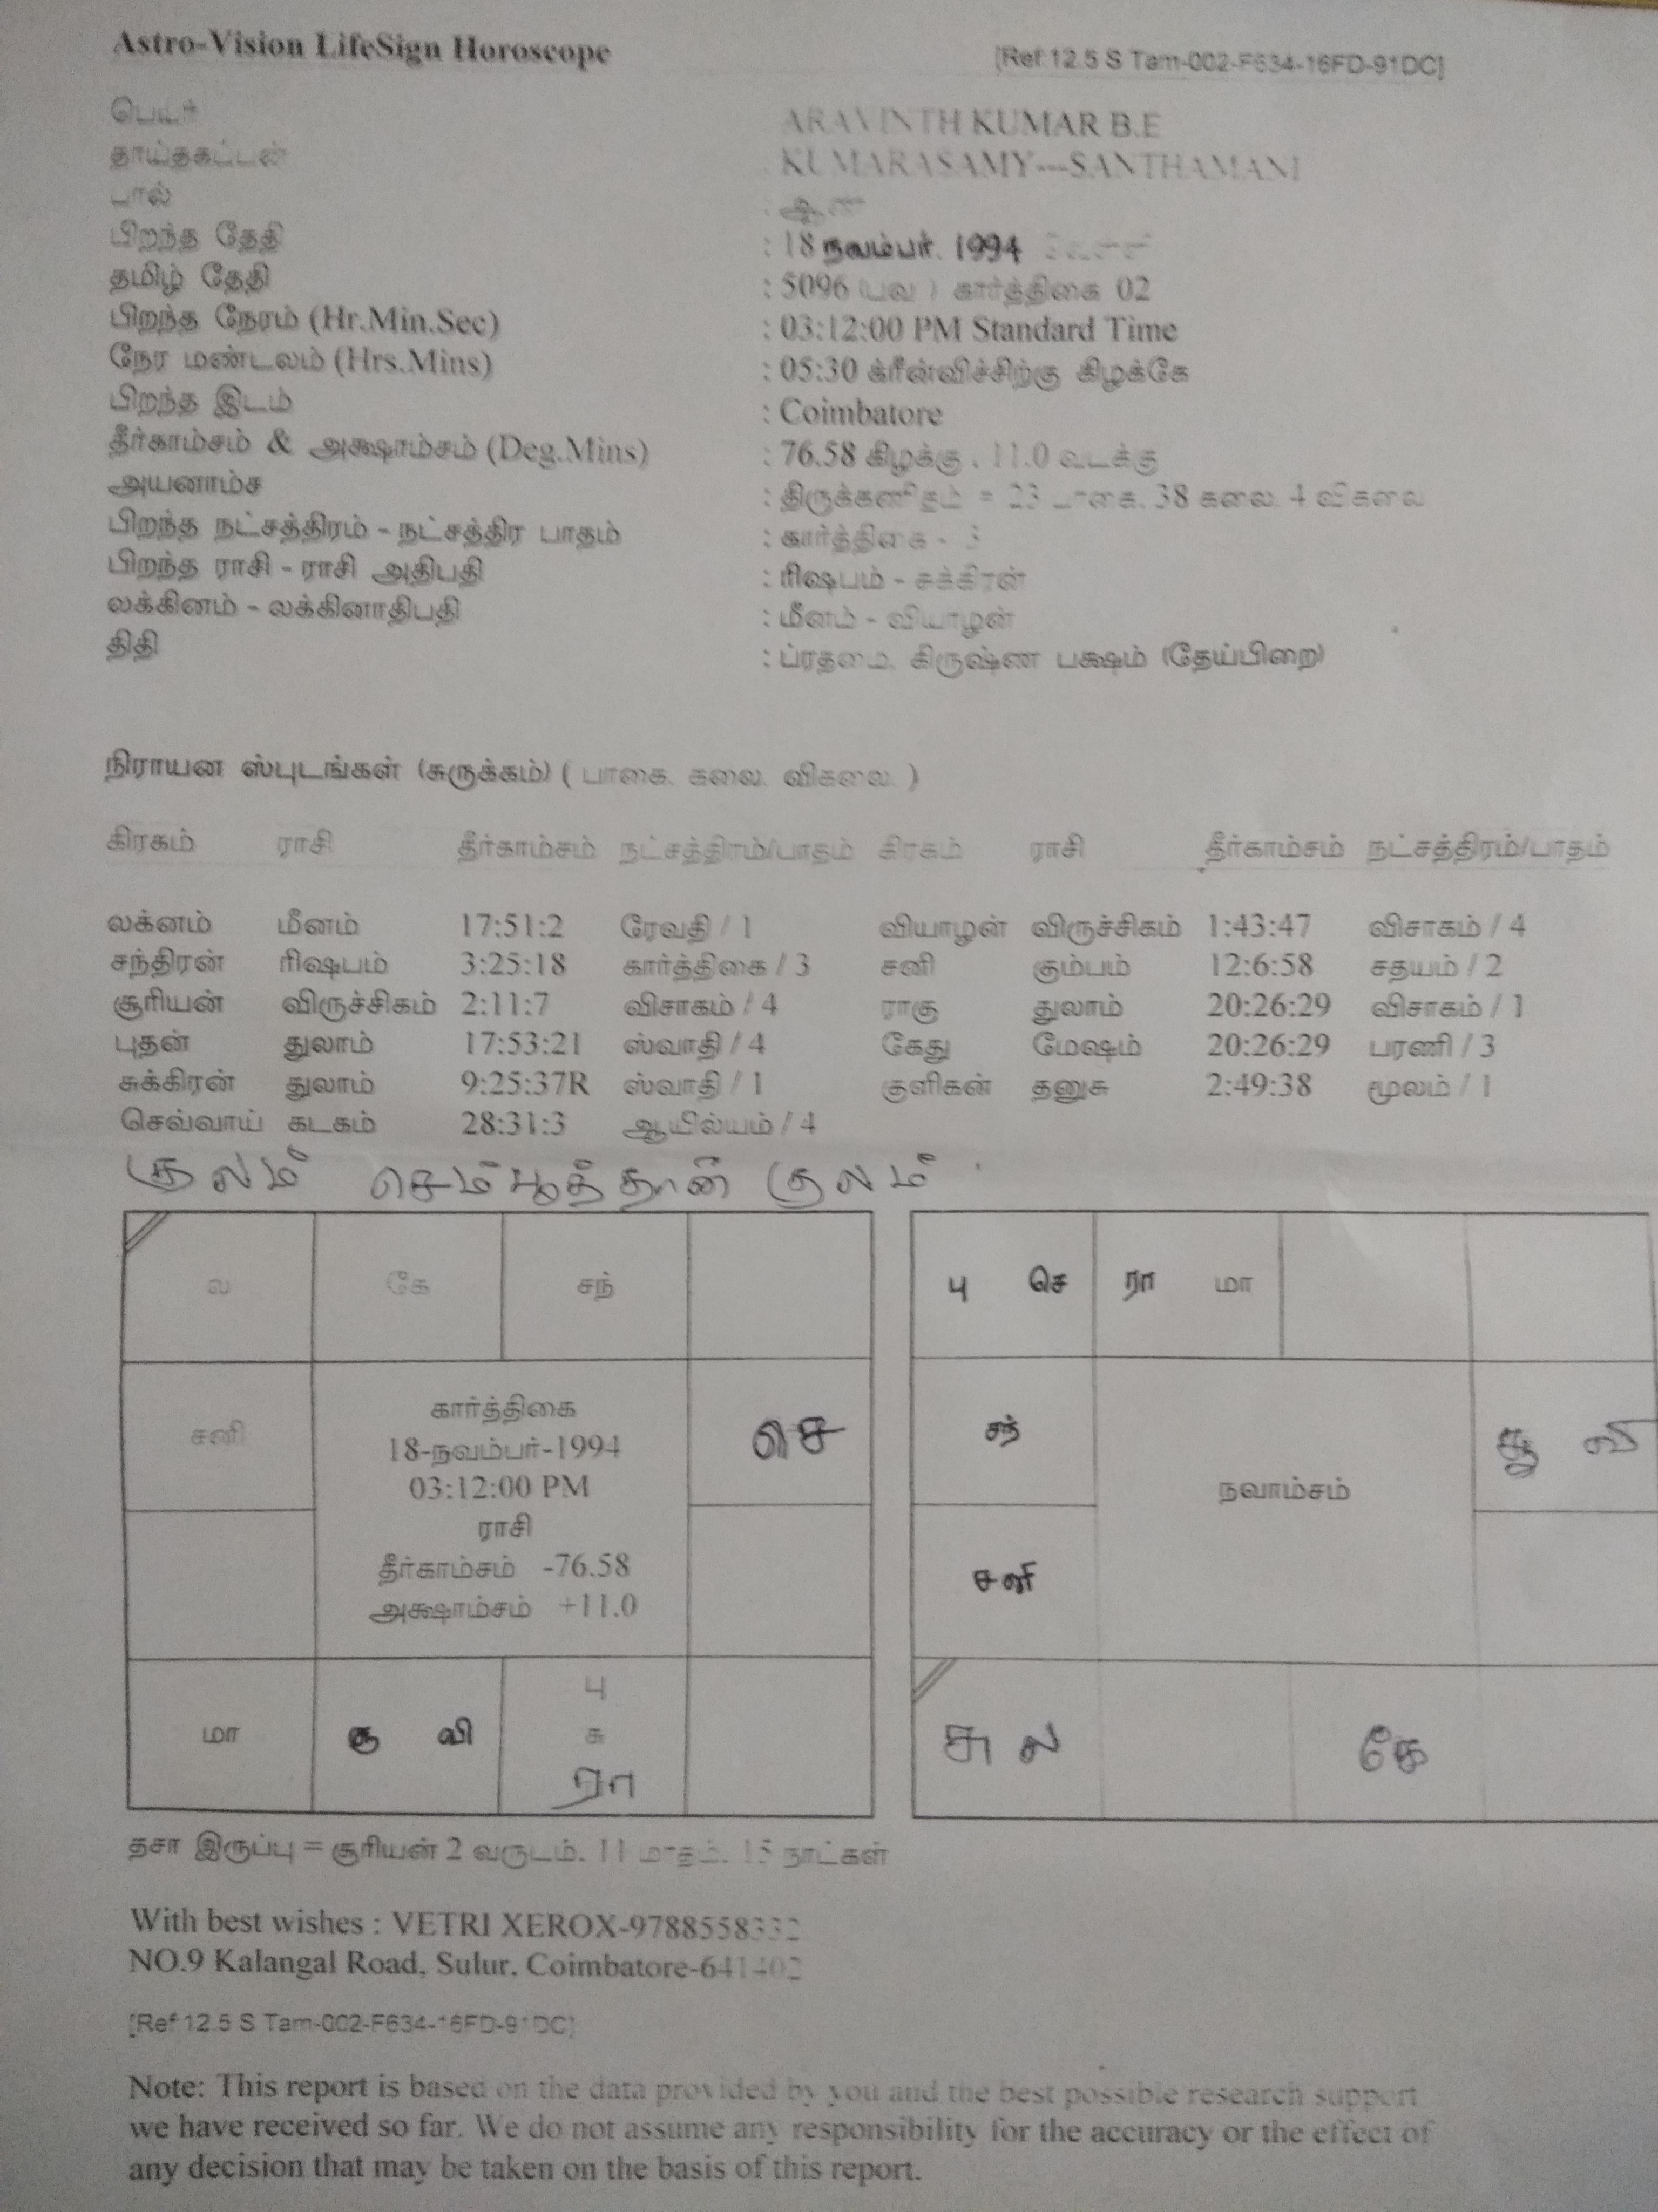 Astro-Vision LifeSign Horoscope [Ref 12.5 S Tam-002-F634-16FD-91DC]
பெயர் ARAVINTH KUMAR B.E
தாய்தகப்பன் KUMARASAMY---SANTHAMANI
பால் : ஆண்
பிறந்த தேதி : 18 நவம்பர். 1994
தமிழ் தேதி : 5096 (பவ ) கார்த்திகை 02
பிறந்த நேரம் (Hr.Min.Sec) : 03:12:00 PM Standard Time
நேர மண்டலம் (Hrs.Mins) : 05:30 க்ரீன்விச்சிற்கு கிழக்கே
பிறந்த இடம் : Coimbatore
தீர்காம்சம் & அக்ஷாம்சம் (Deg.Mins) : 76.58 கிழக்கு . 11.0 வடக்கு
அயனாம்ச : திருக்கணிதம் = 23 பாகை. 38 கலை. 4 விகலை
பிறந்த நட்சத்திரம் - நட்சத்திர பாதம் : கார்த்திகை - 3
பிறந்த ராசி - ராசி அதிபதி : ரிஷபம் - சுக்கிரன்
லக்கினம் - லக்கினாதிபதி : மீனம் - வியாழன்
திதி : ப்ரதமை. கிருஷ்ண பக்ஷம் (தேய்பிறை)
நிராயன ஸ்புடங்கள் (சுருக்கம்) ( பாகை. கலை. விகலை. )
கிரகம் ராசி தீர்காம்சம் நட்சத்திரம்/பாதம் கிரகம் ராசி தீர்காம்சம் நட்சத்திரம்/பாதம்
லக்னம் மீனம் 17:51:2 ரேவதி / 1 வியாழன் விருச்சிகம் 1:43:47 விசாகம் / 4
சந்திரன் ரிஷபம் 3:25:18 கார்த்திகை / 3 சனி கும்பம் 12:6:58 சதயம் / 2
சூரியன் விருச்சிகம் 2:11:7 விசாகம் / 4 ராகு துலாம் 20:26:29 விசாகம் / 1
புதன் துலாம் 17:53:21 ஸ்வாதி / 4 கேது மேஷம் 20:26:29 பரணி / 3
சுக்கிரன் துலாம் 9:25:37R ஸ்வாதி / 1 குளிகன் தனுசு 2:49:38 மூலம் / 1
செவ்வாய் கடகம் 28:31:3 ஆயில்யம் / 4
குலம் செம்பூத்தான் குலம்
ல கே சந்
செ
சனி
கார்த்திகை
18-நவம்பர்-1994
03:12:00 PM
ராசி
தீர்காம்சம் -76.58
அக்ஷாம்சம் +11.0
மா சூ வி பு
சு
ரா
பு செ ரா மா
சந் சூ வி
நவாம்சம்
சனி
சு ல கே
தசா இருப்பு = சூரியன் 2 வருடம். 11 மாதம். 15 நாட்கள்
With best wishes : VETRI XEROX-9788558332
NO.9 Kalangal Road, Sulur, Coimbatore-641402
[Ref 12.5 S Tam-002-F634-16FD-91DC]
Note: This report is based on the data provided by you and the best possible research support
we have received so far. We do not assume any responsibility for the accuracy or the effect of
any decision that may be taken on the basis of this report.